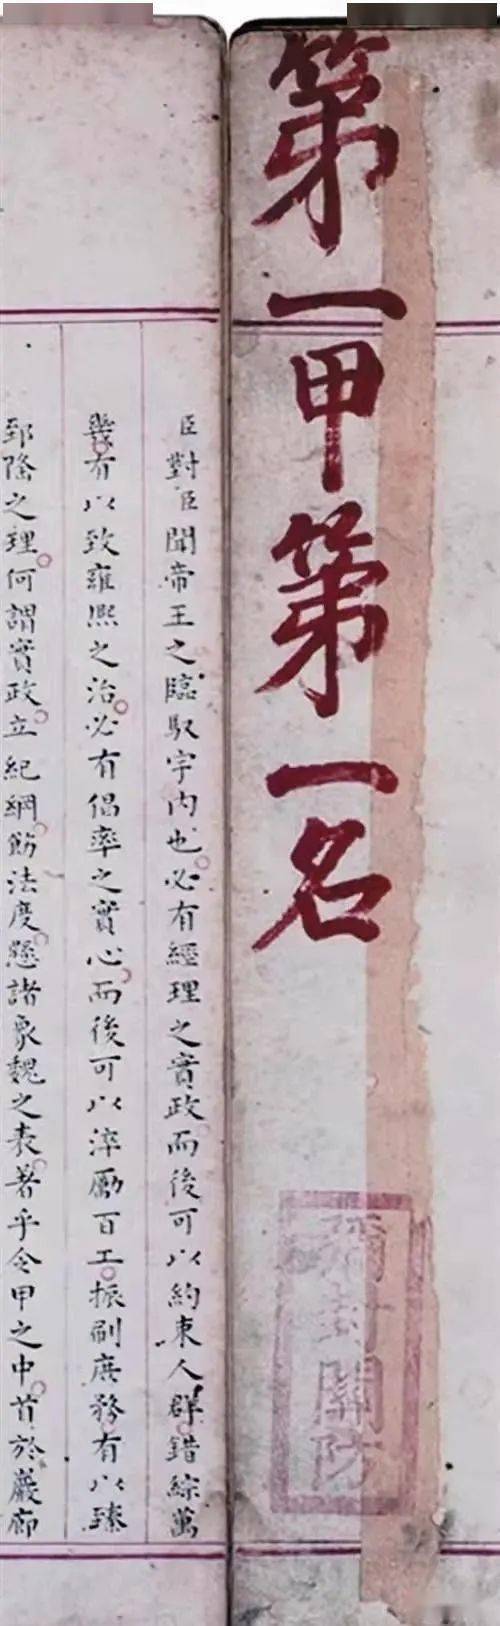 第一甲第一名
彌封關防
臣對臣聞帝王之臨馭宇內也必有經理之實政而後可以約束人群錯綜萬
幾有以致雍熙之治必有倡率之實心而後可以淬勵百工振刷庶務有以臻
郅隆之理何謂實政立紀綱飭法度懸諸象魏之表著乎令甲之中首於巖廊